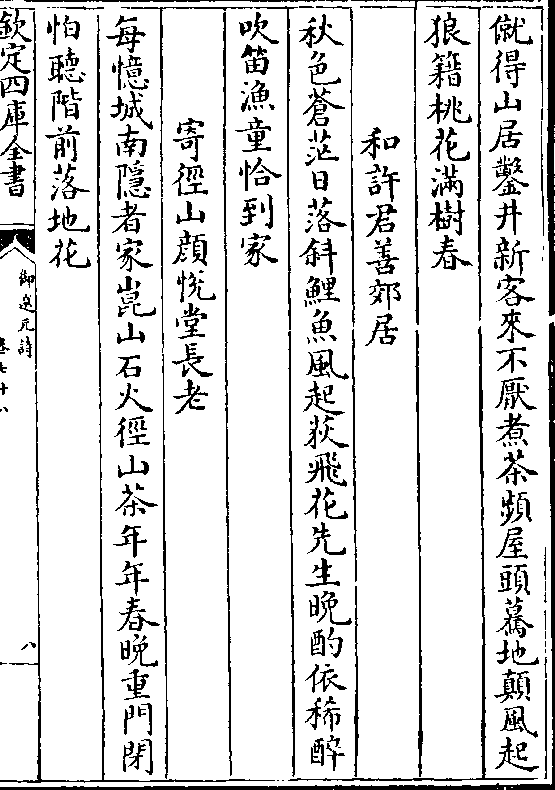 僦得山居鑿井新客來不厭煮茶頻屋頭驀地顛風起
狼籍桃花滿樹春
和許君善郊居
秋色蒼茫日落斜鯉魚風起荻飛花先生晚酌依稀醉
吹笛漁童恰到家
寄徑山顔恱堂長老
每憶城南隱者家崑山石火徑山茶年年春晚重門閉
怕聽階前落地花
欽定四庫全書
御選元詩
卷七十八
八